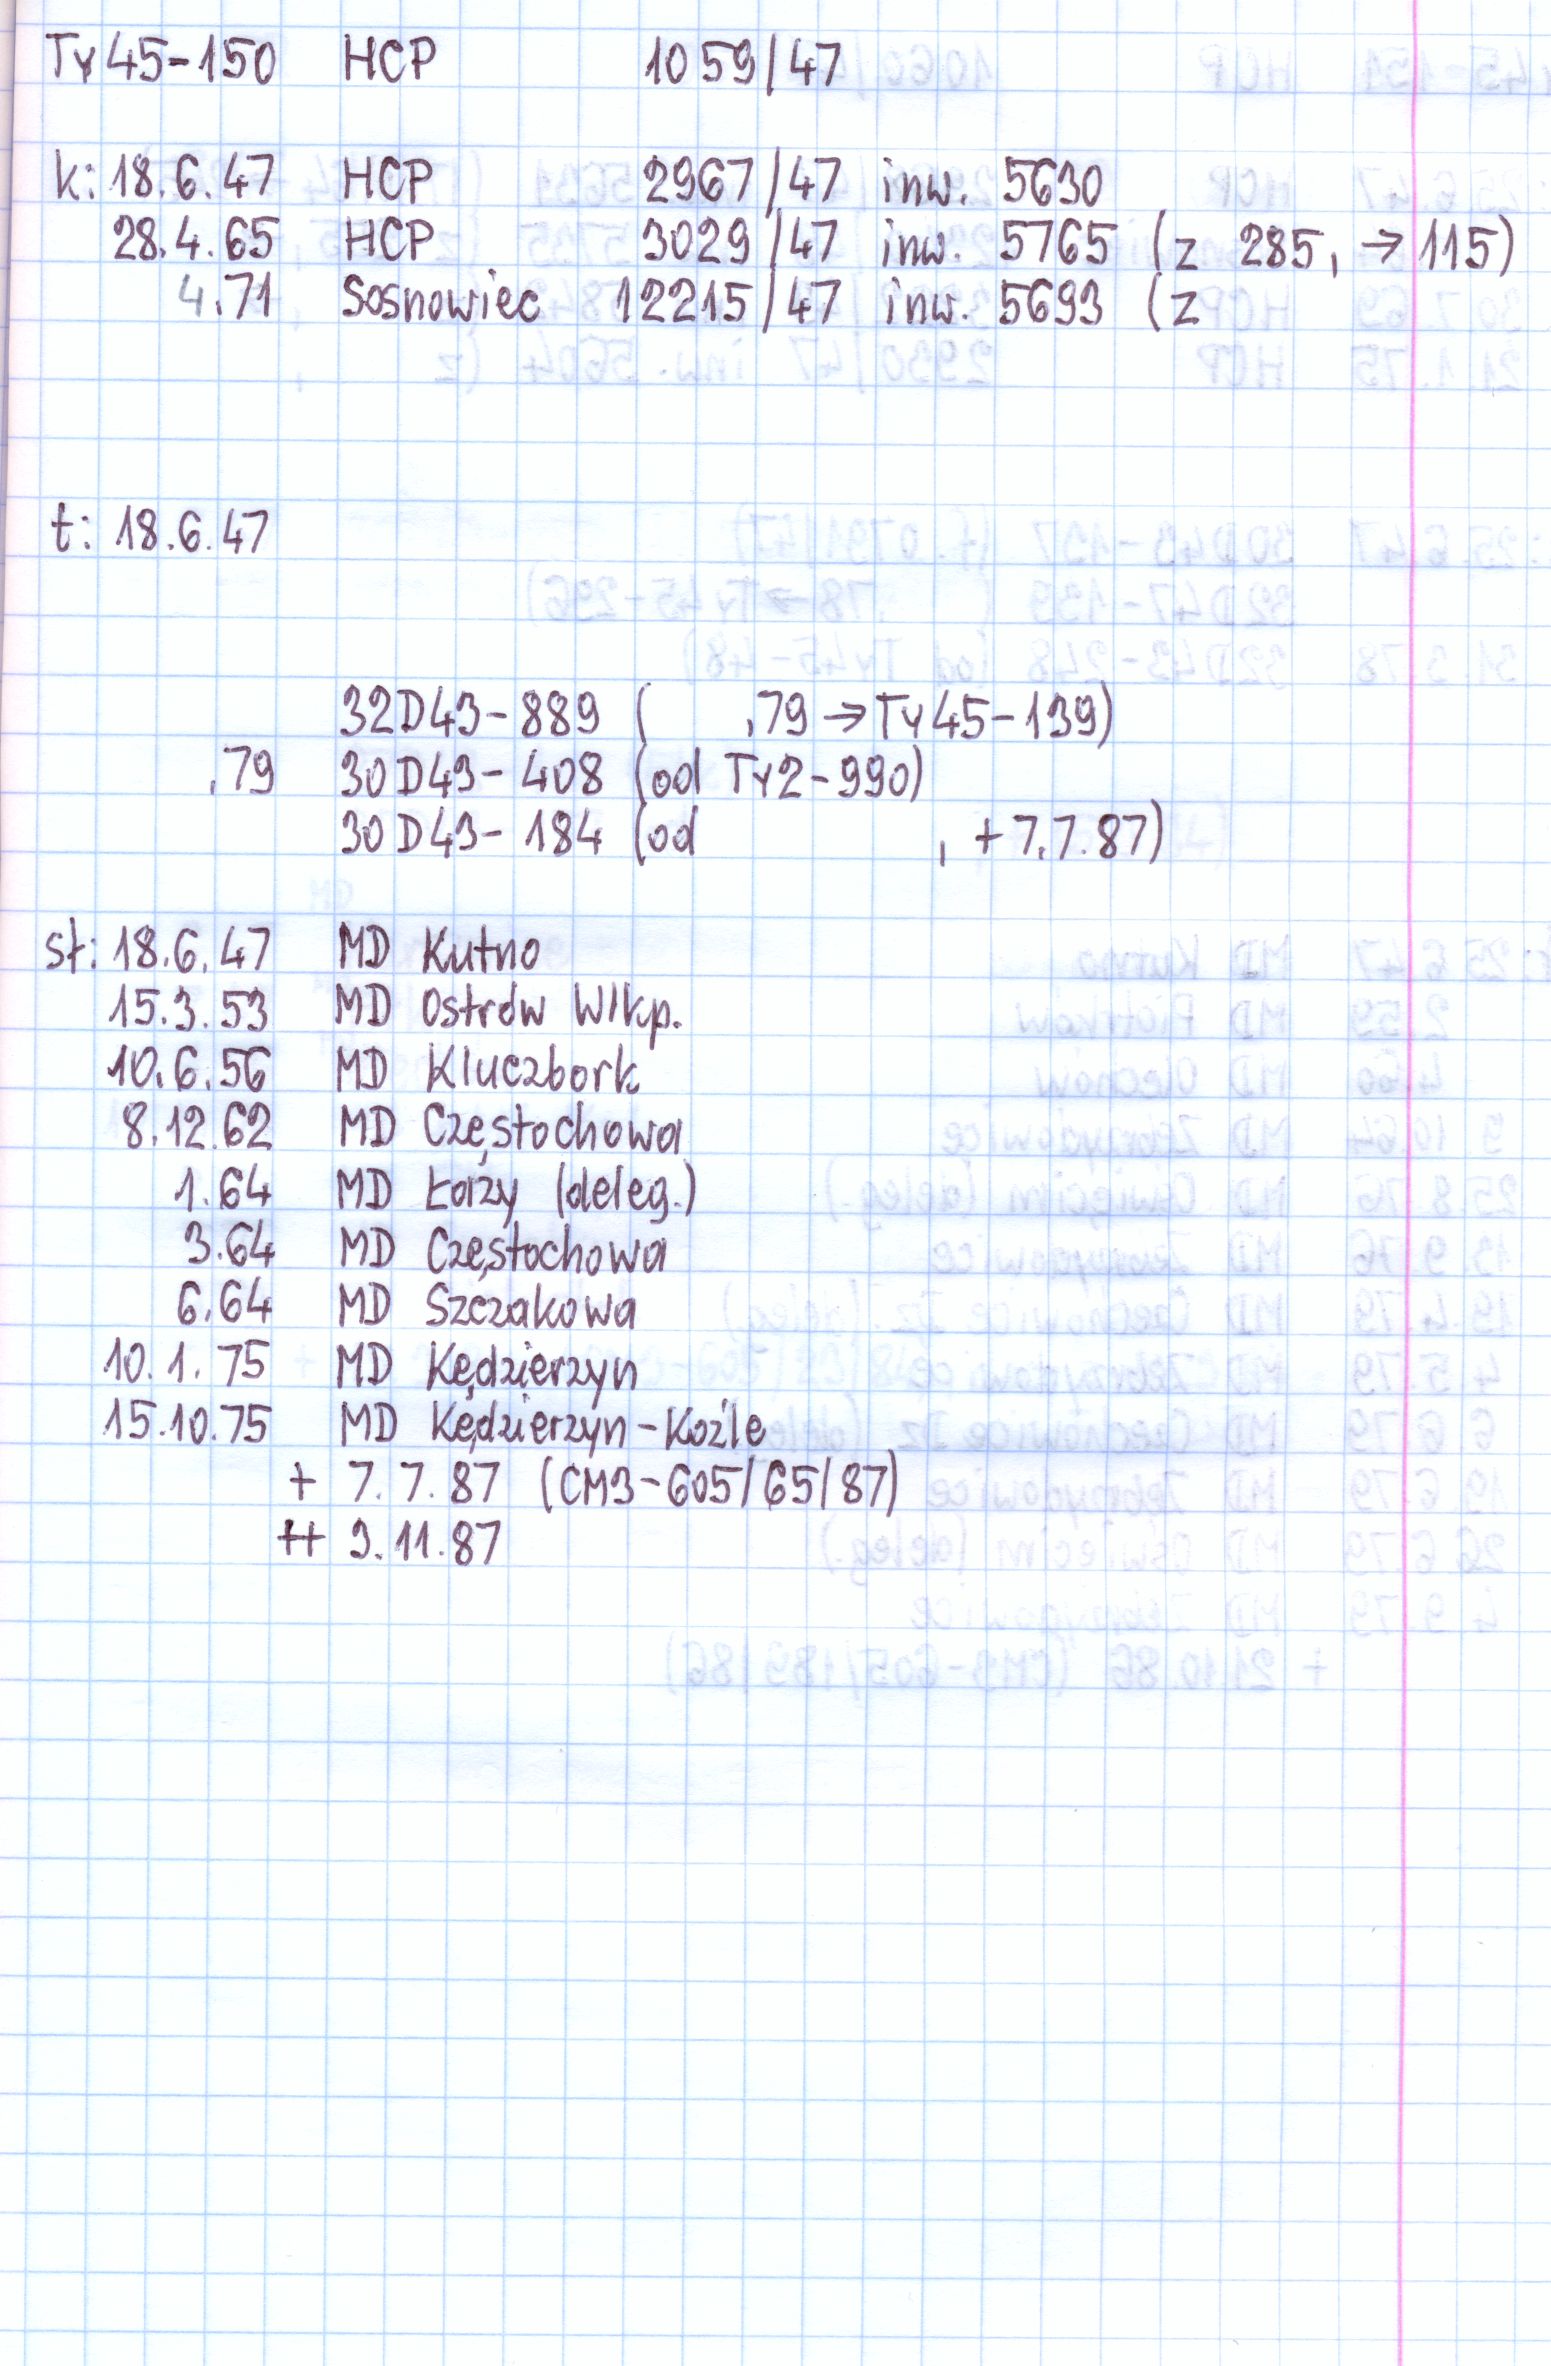 Ty45-150 HCP 1059/47
k: 18.6.47 HCP 2967/47 inw. 5630
28.4.65 HCP 3029/47 inw. 5765 (z 285, → 115)
4.71 Sosnowiec 12215/47 inw. 5693 (z
t: 18.6.47
32D43-889 ( .79 → Ty45-139)
.79 30D43-408 (od Ty2-990)
30D43-184 (od , + 7.7.87)
st: 18.6.47 MD Kutno
15.3.53 MD Ostrów Wlkp.
10.6.56 MD Kluczbork
8.12.62 MD Częstochowa
1.64 MD Łazy (deleg.)
3.64 MD Częstochowa
6.64 MD Szczakowa
10.1.75 MD Kędzierzyn
15.10.75 MD Kędzierzyn-Koźle
+ 7.7.87 (CM3-605/65/87)
++ 9.11.87